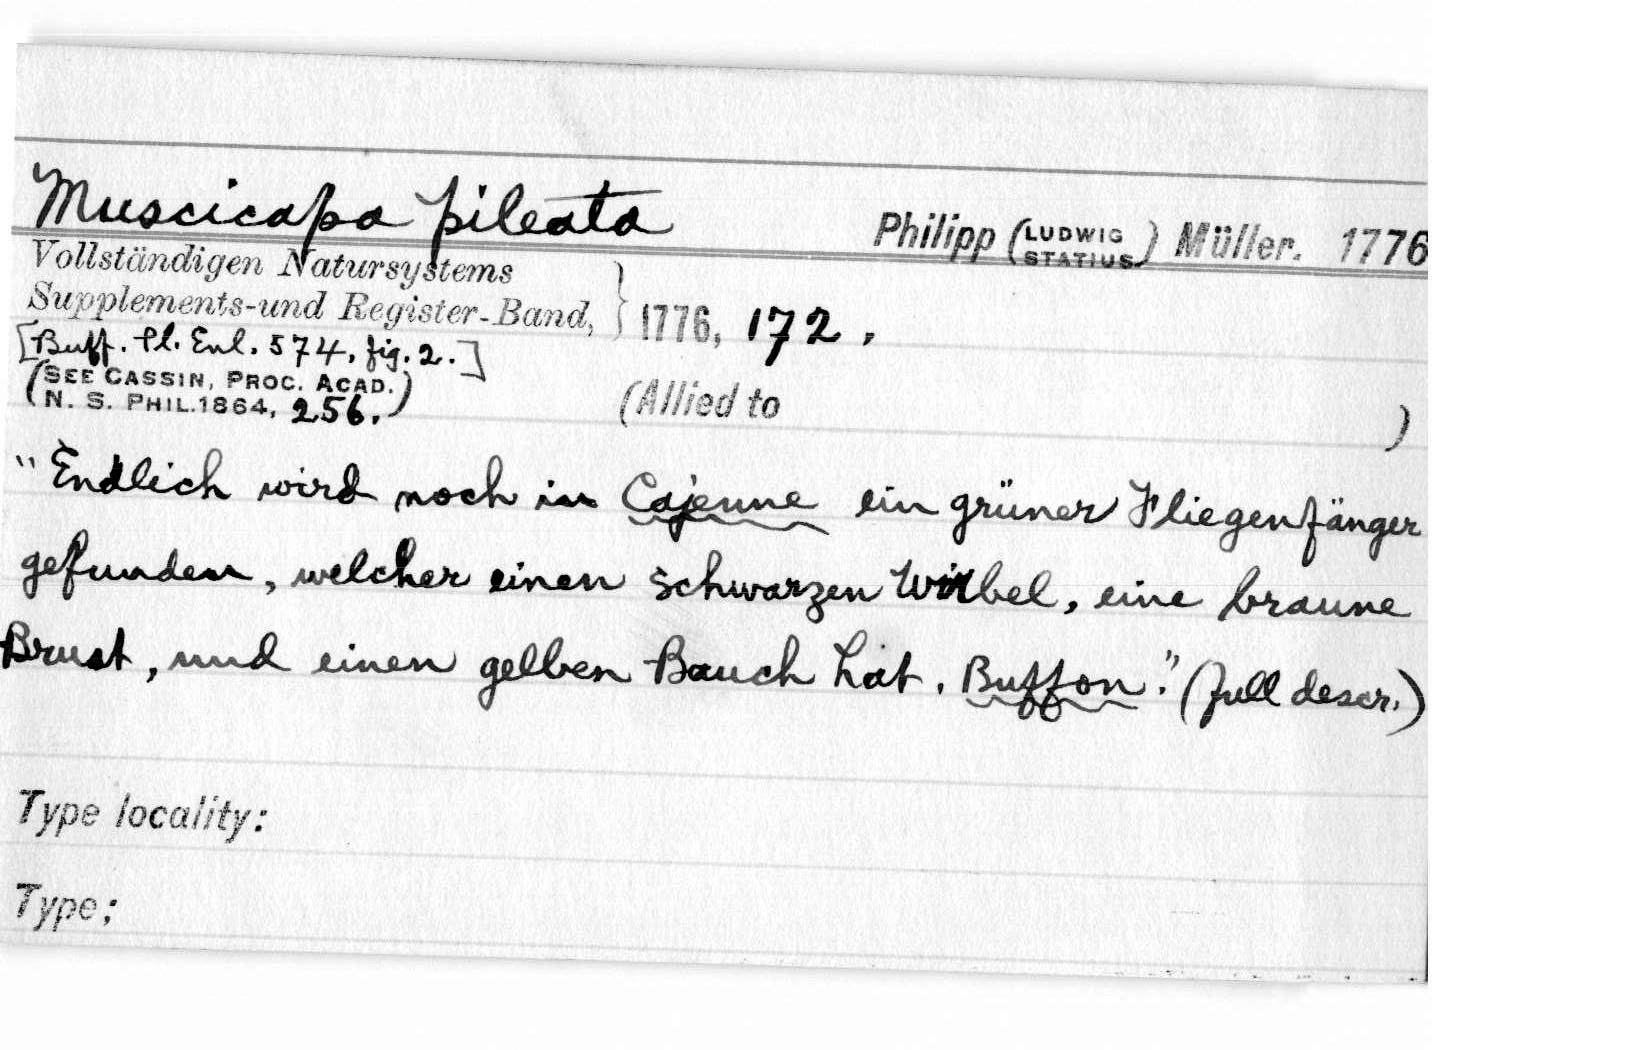 Muscicapa pileata
Philipp (LUDWIG STATIUS) Müller. 1776
Vollständigen Natursystems
Supplements-und Register-Band, } 1776, 172.
[Buff. Pl. Enl. 574, fig. 2.]
(SEE CASSIN, PROC. ACAD.
N. S. PHIL. 1864, 256.)
(Allied to )
"Endlich wird noch in Cajenne ein grüner Fliegenfänger
gefunden, welcher einen schwarzen Wirbel, eine braune
Brust, und einen gelben Bauch hat. Buffon." (full descr.)
Type locality:
Type;